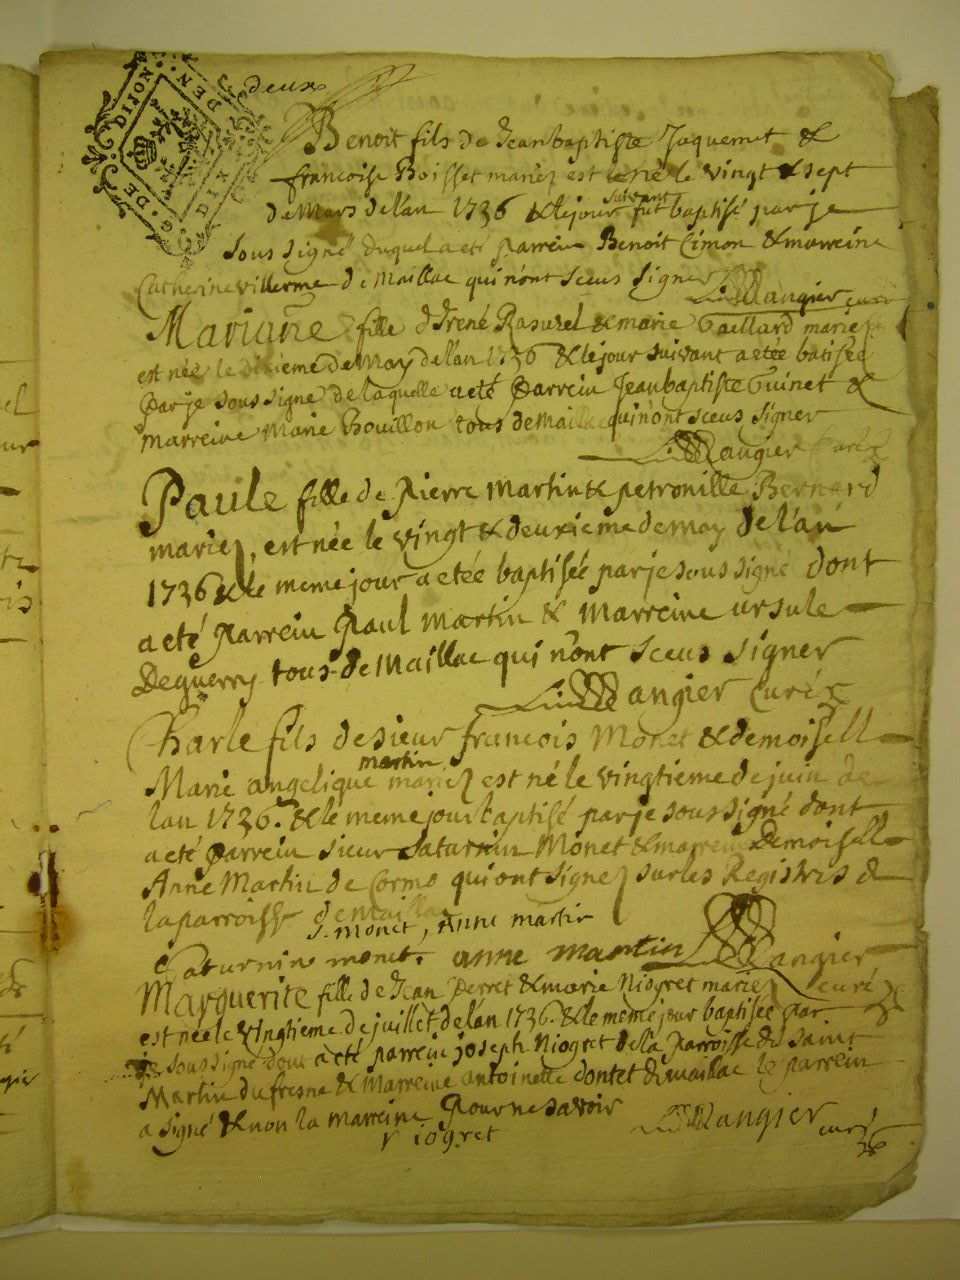 deux
Benoit fils de Jean baptiste Jaquemet &
francoise Boisset mariez est né le vingt & sept
de Mars de l'an 1736 & le jour suivant fut baptisé par je
sous signé duquel a eté parrein Benoit Cimon & marreine
Catherine villerme de Maillac qui n'ont sceus signer
Mangier curé
Mariane fille d'Irené Rasurel & marie Gaillard mariez
est née le dixieme de May de l'an 1736 & le jour suivant a etée batisée
par je sous signé de laquelle a eté parrein Jean baptiste Guinet &
marreine Marie Bouillon tous de Maillac qui n'ont sceus signer
Mangier Curé
Paule fille de pierre Martin & petronille Bernard
mariez, est née le vingt & deuxieme de may de l'an
1736 & le meme jour a etée baptisée par je sous signé dont
a eté parrein Paul Martin & Marreine ursule
Deguerry tous de Maillac qui n'ont sceus signer
Mangier Curé
Charle fils de sieur francois Monet & demoisell
Marie angelique martin mariez est né le vingtieme de juin de
lan 1736. & le meme jour baptisé par je sous signé dont
a eté parrein sieur Saturnin Monet & marrein Demoisell
Anne Martin de Cormo qui ont signez sur les Registres de
la parroisse de Maillac
S. monet, Anne martin
Saturnin monet. anne martin Mangier
curé
Marguerite fille de Jean Perret & marie Niogret mariez
est née le vingtieme de juillet de l'an 1736. & le meme jour baptisée par
je sous signé dont a eté parrein joseph Niogret de la Parroisse de saint
Martin du fresne & Marreine antoinette dontet de maillac le parrein
a signé & non la marreine pour ne savoir
Mangier curé
iogret